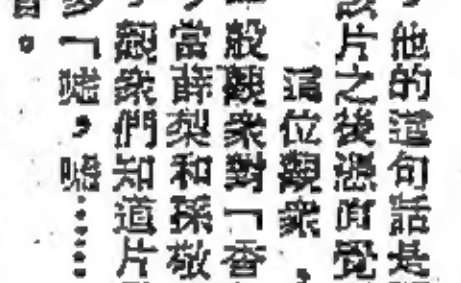 他的這句話是
片之後憑直覺
這位觀衆，
般觀衆對「香
當薛梨和孫敬
觀衆們知道片
多「噓，嘻……
。